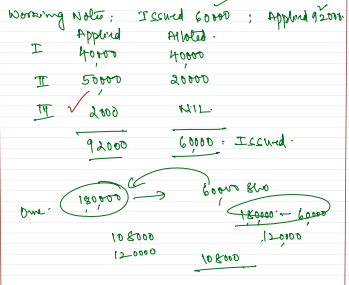 Working Note: Issued 60000 ; Applied 92000
Applied Alloted.
I 40000 40000
II 50000 20000
III 2000 NIL.
92000 60000 = Issued.
180000 → 60000 sho
180000 - 60000
120000
108000
120000
108000